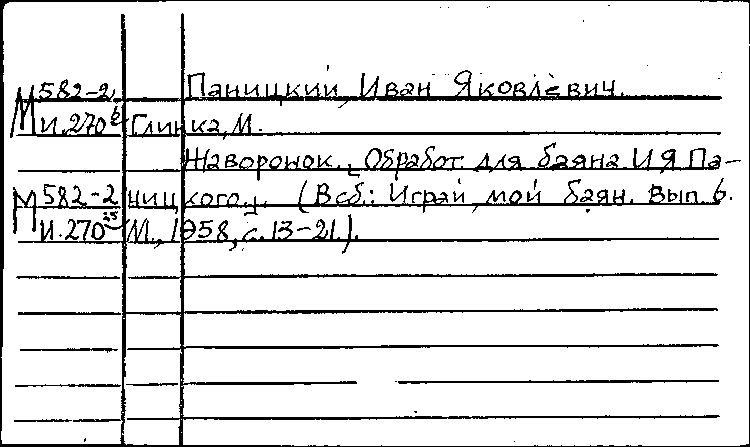 М 582-2 Паницкий, Иван Яковлевич.
И.270 Глинка, М.
Жаворонок. Обработ. для баяна И.Я. Па-
М 582-2 ницкого. (В сб.: Играй, мой баян. Вып. 6.
И.270 М., 1958, с. 13-21.).